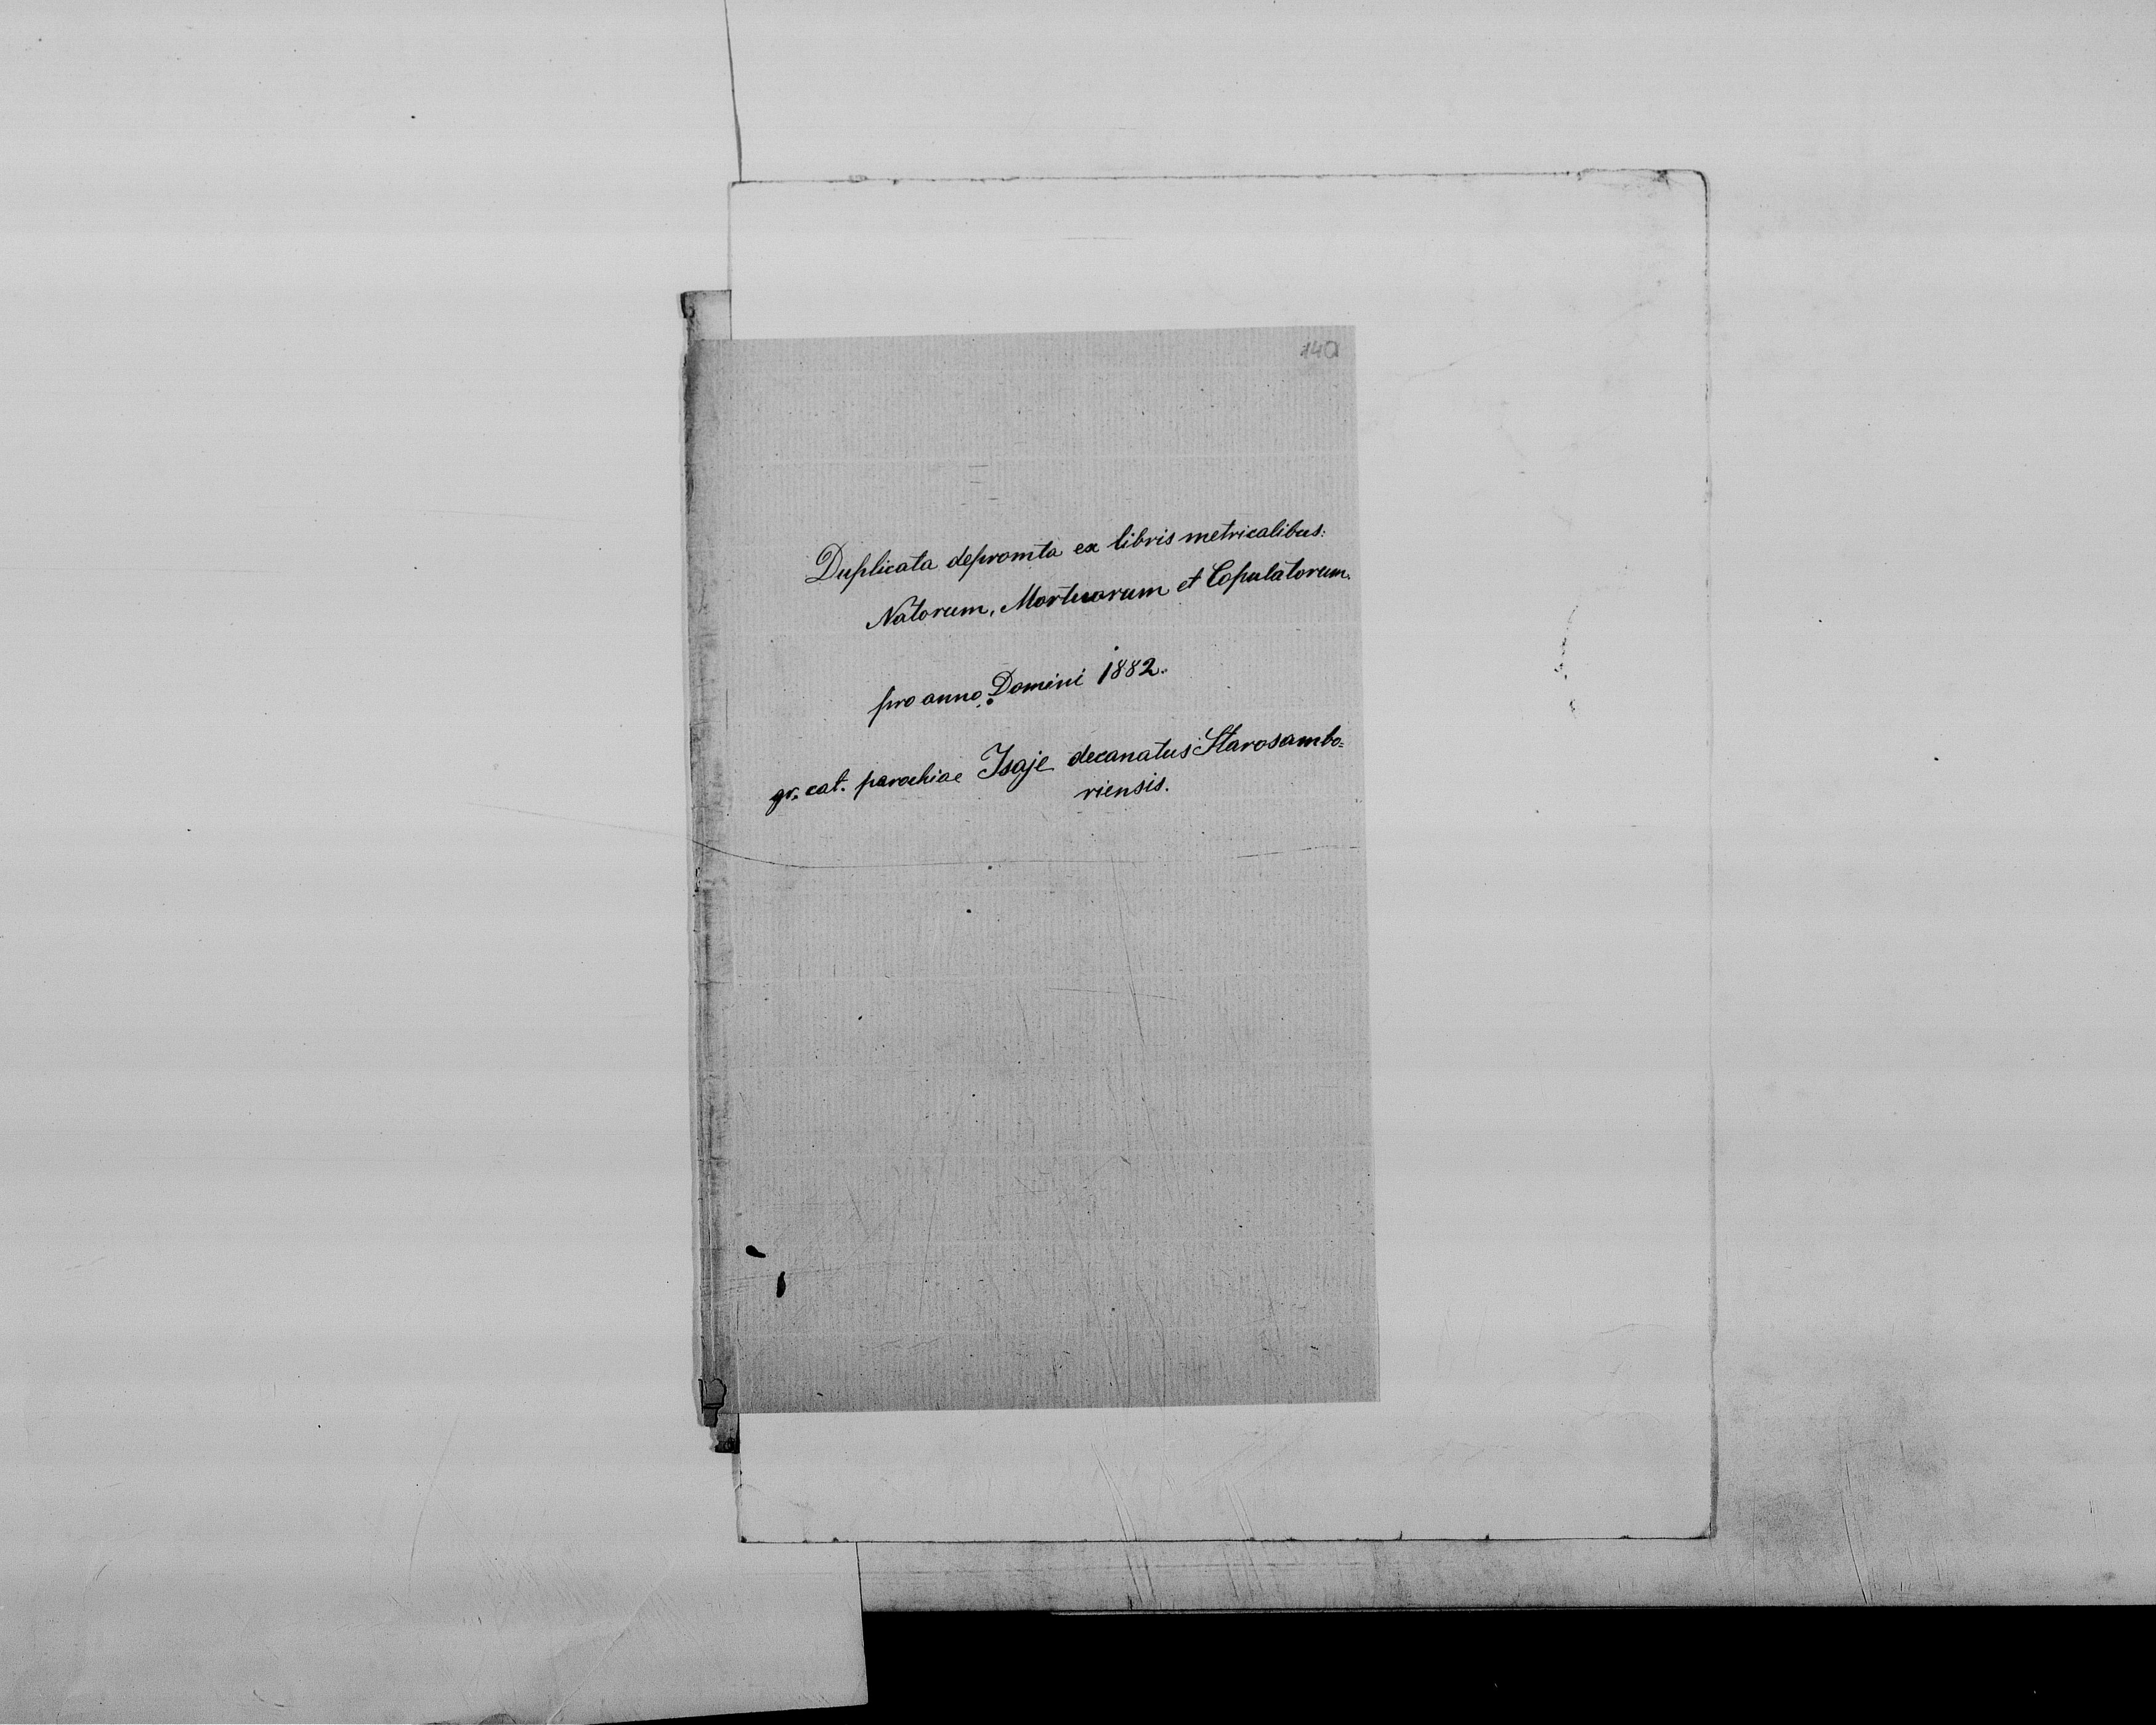 140
Duplicata depromta ex libris metricalibus:
Natorum, Mortuorum et Copulatorum.
pro anno Domini 1882.
gr. cat. parochiae Isaje decanatus Starosambo=
riensis.